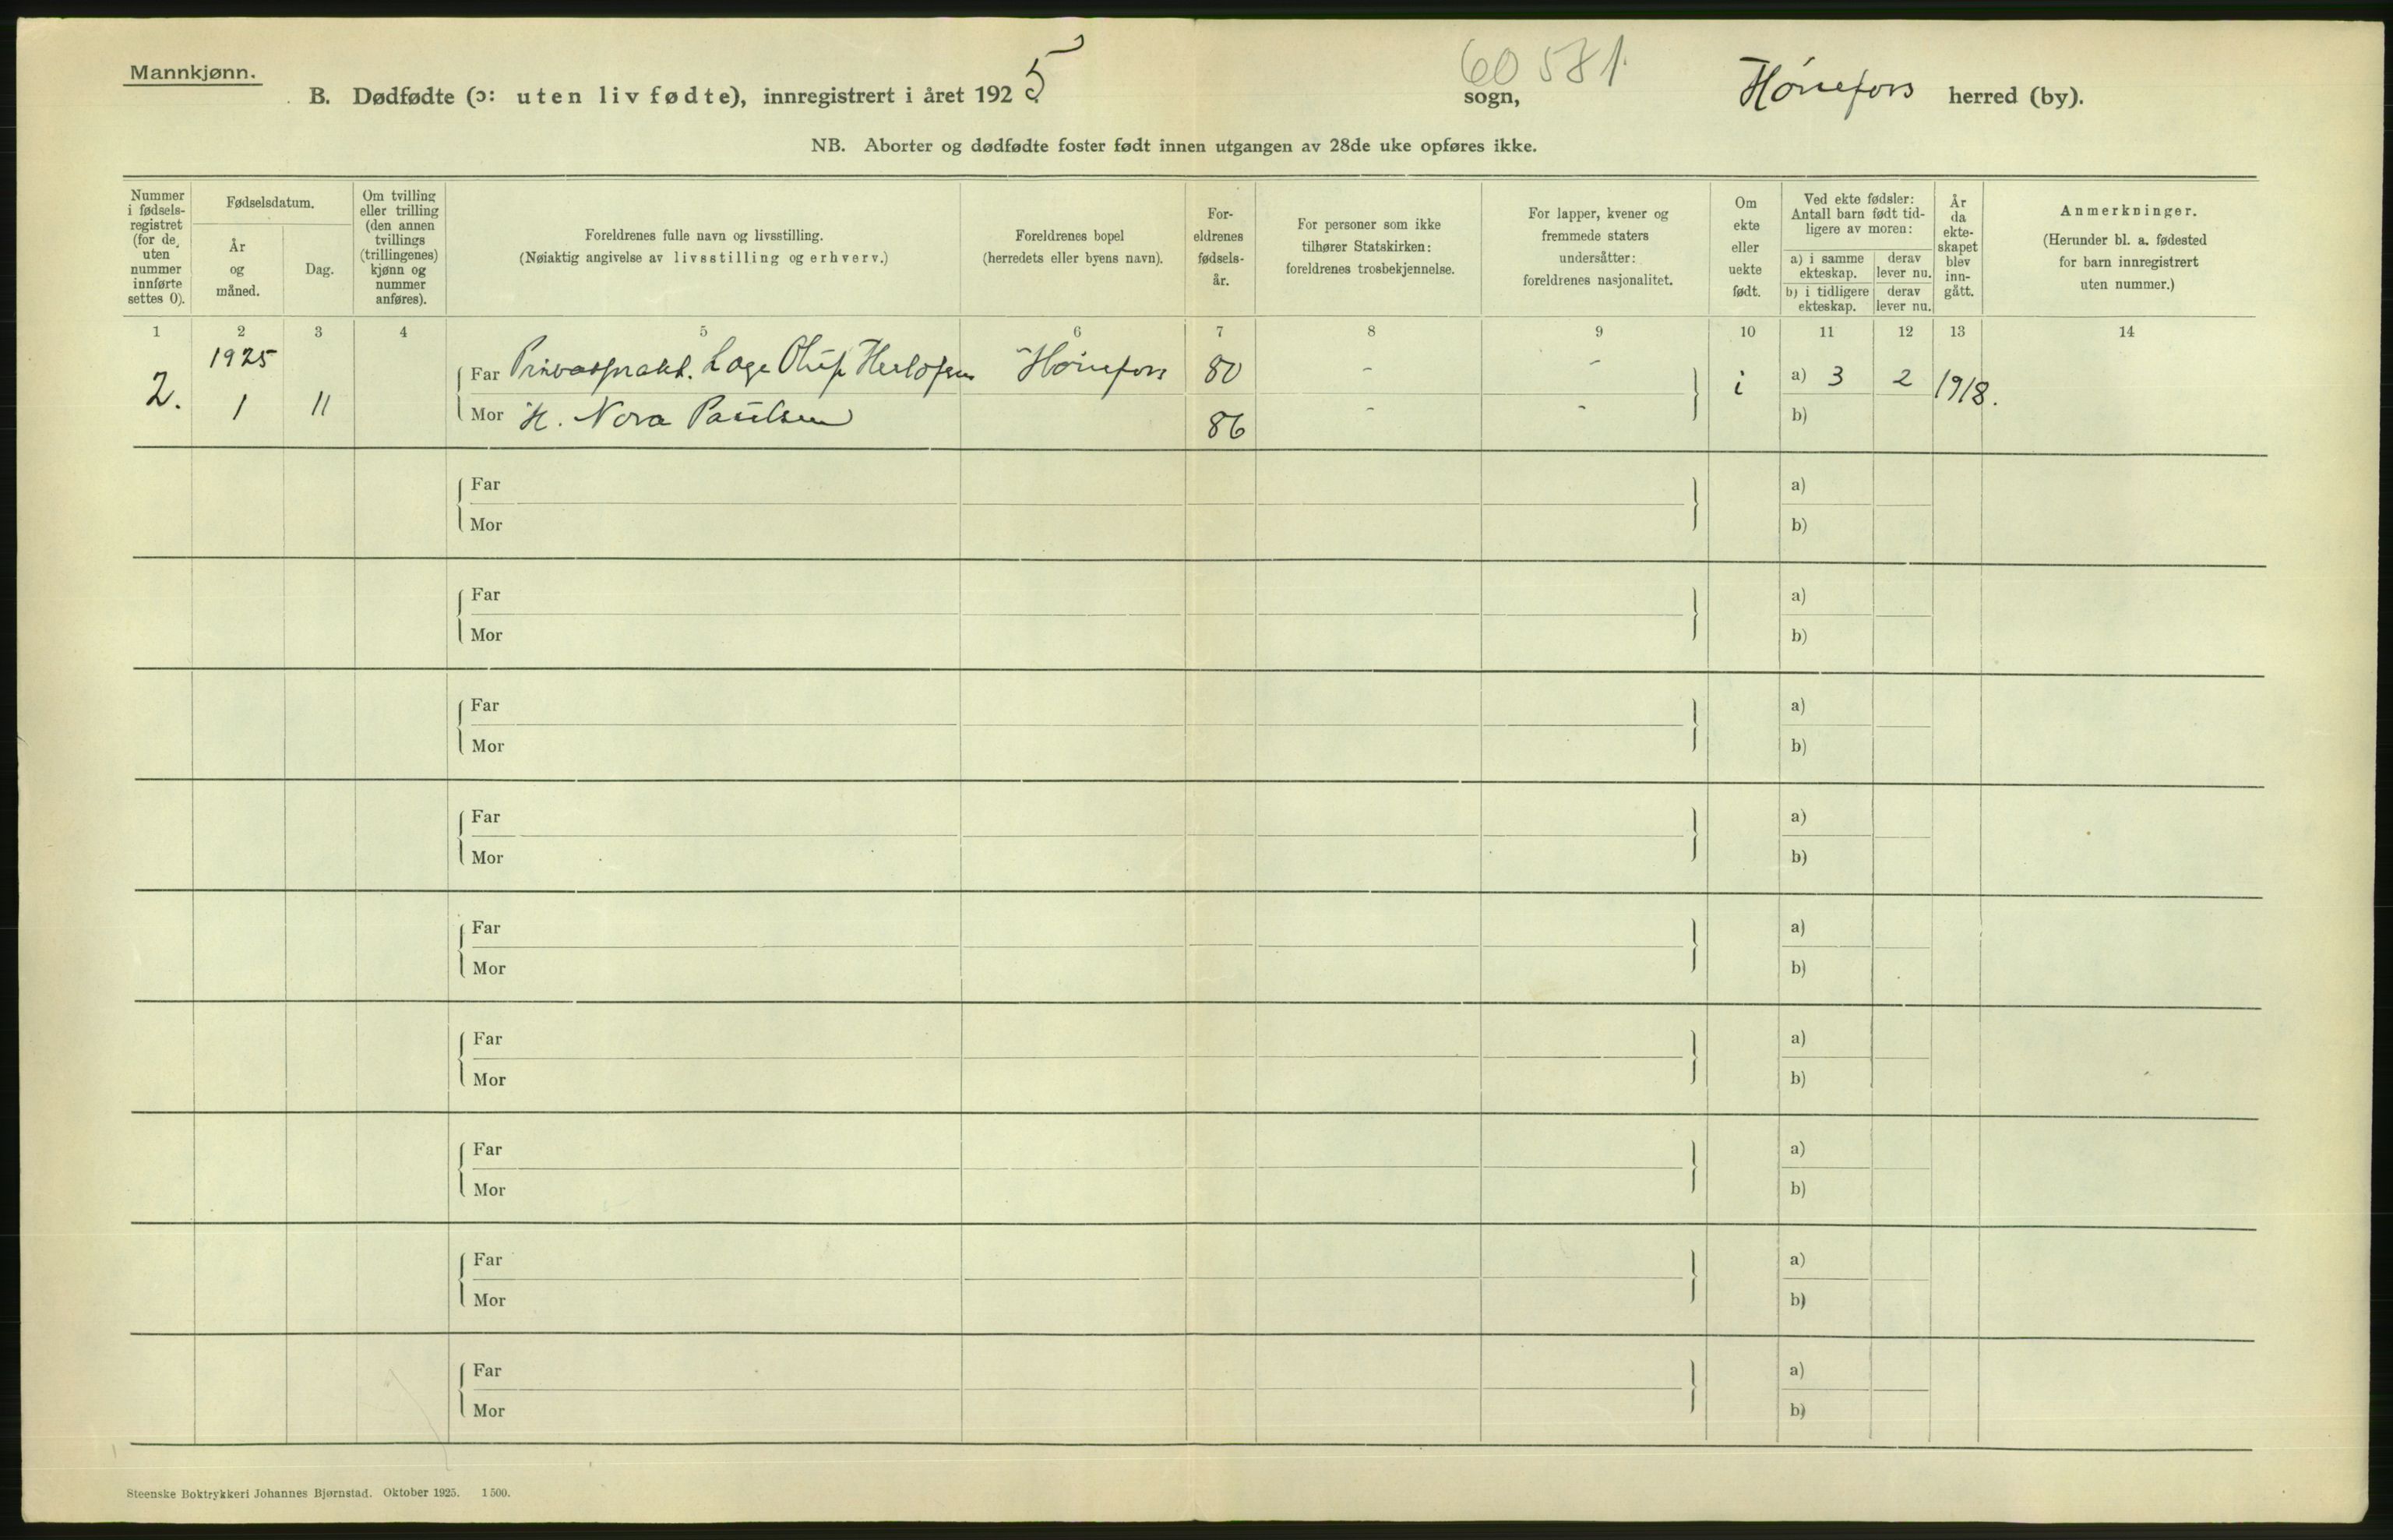 Mannkjønn.
60 581.
B. Dødfødte (ɔ: uten liv fødte), innregistrert i året 1925 sogn, Hønefoss herred (by).
NB. Aborter og dødfødte foster født innen utgangen av 28de uke opføres ikke.
Nummer i fødsels-registret (for de uten nummer innførte settes 0).
Fødselsdatum.
År og måned.
Dag.
Om tvilling eller trilling (den annen tvillings (trillingenes) kjønn og nummer anføres).
Foreldrenes fulle navn og livsstilling.
(Nøiaktig angivelse av livsstilling og erhverv.)
Foreldrenes bopel
(herredets eller byens navn).
For-eldrenes fødsels-år.
For personer som ikke tilhører Statskirken: foreldrenes trosbekjennelse.
For lapper, kvener og fremmede staters undersåtter: foreldrenes nasjonalitet.
Om ekte eller uekte født.
Ved ekte fødsler: Antall barn født tid-ligere av moren:
a) i samme ekteskap.
derav lever nu.
b) i tidligere ekteskap.
derav lever nu.
År da ekte-skapet blev inn-gått.
Anmerkninger.
(Herunder bl. a. fødested for barn innregistrert uten nummer.)
1 2 3 4 5 6 7 8 9 10 11 12 13 14
1925
2. 1 11
Far Hønefoss 80 - - i a) 3 2 1918.
Mor H. Nora Paulsen 86 - - b)
Far a)
Mor b)
Far a)
Mor b)
Far a)
Mor b)
Far a)
Mor b)
Far a)
Mor b)
Far a)
Mor b)
Far a)
Mor b)
Far a)
Mor b)
Far a)
Mor b)
Steenske Boktrykkeri Johannes Bjørnstad. Oktober 1925. 1500.